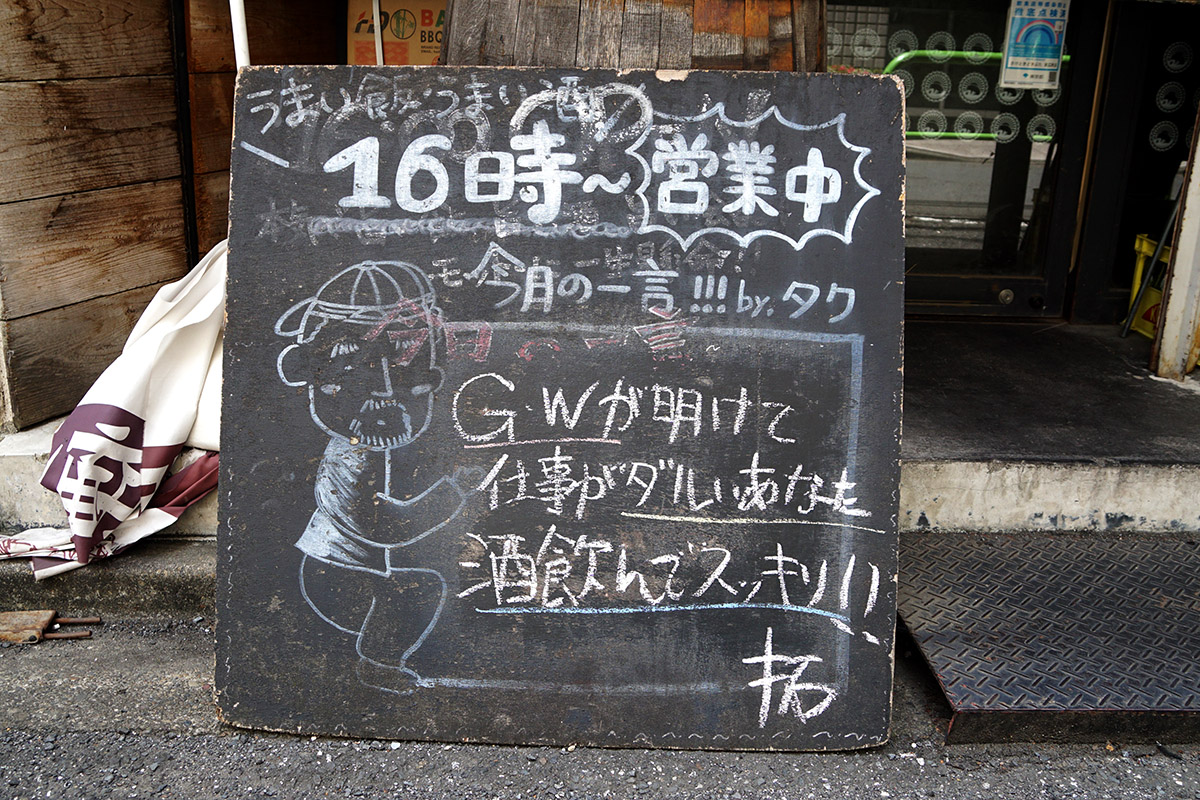 BA
BBQ
うまい飯、うまい酒
16時~営業中
今月の一言!!! by.タク
今日の一言
G.Wが明けて
仕事がダルいあなた
酒飲んでスッキリ!!
拓